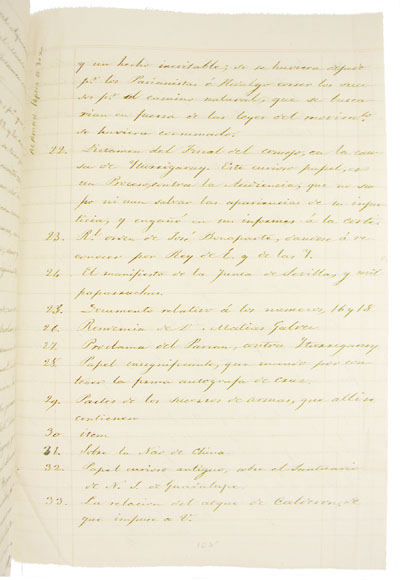 y un hecho inevitable; si se huviera dejado
pr. los Parianistas á Hidalgo correr los suce
sos pr. el camino natural, que se busca
rian en fuerza de las leyes del movimto.
se huviera consumado.
22. Dictamen del Fiscal del consejo, en la cau
sa de Yturrigaray. Este curioso papel, es
un contra la Audiencia, que no su
po ni aun salvar las apariencias de su injus
ticia, y engañó en sus informes á la corte.
23. Rl. orden de José Bonaparte, dandose á re
conocer por Rey de E. y de las Y.
24. El manifiesto de la Junta de Sevilla, y mil
paparruchas.
25. Documento relativo á los numeros, 16 y 18
26. Renuncia de D. Matias Galvez
27. Proclama del Parian, contra Yturrigaray
28. Papel insignificante, que mando por con
tener la firma autografa de Cruz.
29. Partes de los sucesos de armas, que alli se
contienen
30 item
31. Sobre la Náo de China
32. Papel curioso antiguo, sobre el Santuario
de N. S. de Guadalupe.
33. La relacion del ataque de Calderon, de
que impuse a V.